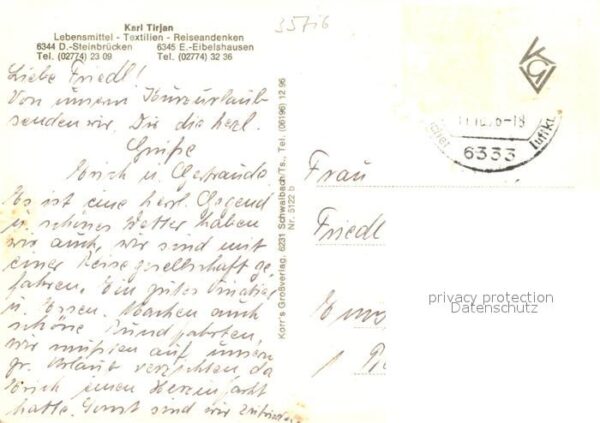 35716
Karl Tirjan
Lebensmittel - Textilien - Reiseandenken
6344 D.-Steinbrücken 6345 E.-Eibelshausen
Tel. (02774) 23 09 Tel. (02774) 32 36
Liebe Friedl!
Von unserm Kurzurlaub
senden wir Dir die herzl.
Grüße
Erich u. Gertrauda
Es ist eine herl. Gegend
u. schönes Wetter haben
wir auch, wir sind mit
einer Reisegesellschaft ge,
fahren. Ein gutes Quatier
u. Essen. Machen auch
schöne Rundfahrten,
wir mußten auf unsern
gr. Urlaub verzichten, da
Erich einen Herzinfarkt
hatte. Sonst sind wir zufrieden
Korr's Großverlag, 6231 Schwalbach/Ts., Tel. (06196) 12 96
Nr. 5122 b
6333
luftkt
Frau
Friedl
privacy protection
Datenschutz